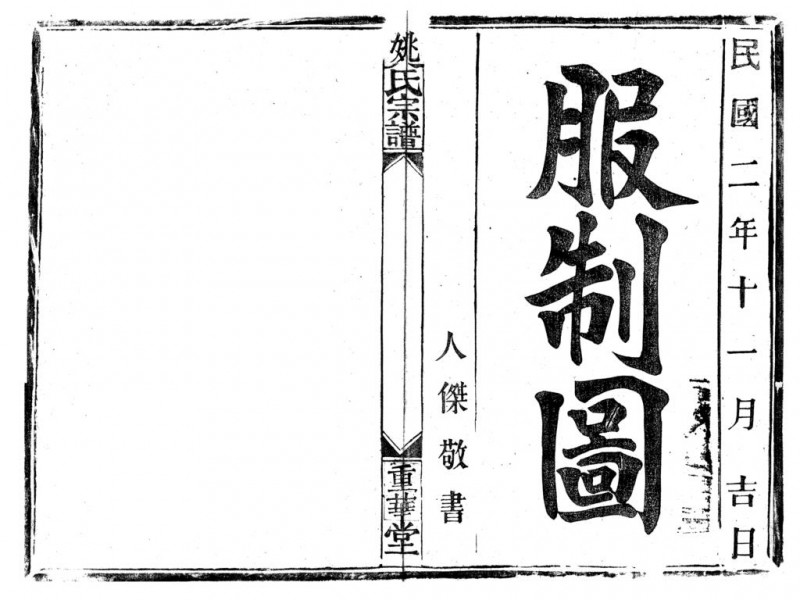 民國二年十一月吉日
服制圖
人傑敬書
姚氏宗譜
重華堂